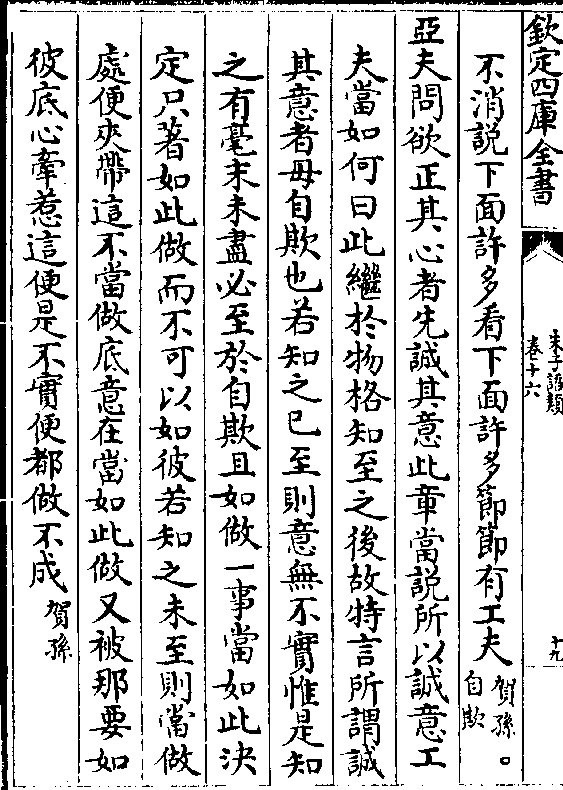 欽定四庫全書
朱子語類
卷十六
十九
不消説下面許多看下面許多節節有工夫賀孫○自欺
亞夫問欲正其心者先誠其意此章當説所以誠意工
夫當如何曰此繼於物格知至之後故特言所謂誠
其意者毋自欺也若知之已至則意無不實惟是知
之有毫末未盡必至於自欺且如做一事當如此決
定只著如此做而不可以如彼若知之未至則當做
處便夾帶這不當做底意在當如此做又被那要如
彼底心牽惹這便是不實便都做不成賀孫